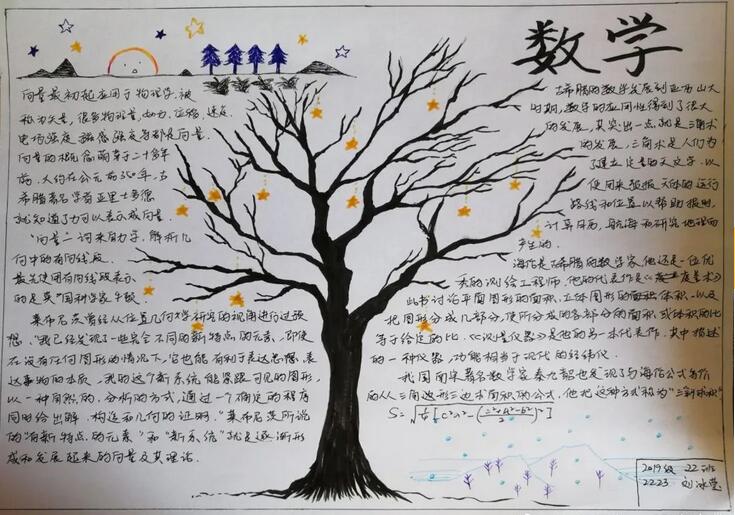 数学
向量最初起应用于物理学,被
称为矢量,很多物理量,如力、位移、速度、
电场强度、磁感强度等都是向量。
向量的概念萌芽于二千多年
前。大约在公元前350年,古
希腊著名学者亚里士多德
就知道了力可以表示成向量。
"向量"一词来自力学、解析几
何中的有向线段。
最先使用有向线段表示
的是英国科学家牛顿。
莱布尼茨曾经从位置几何学研究的视角进行过设
想,"我已经发现了一些完全不同的新特点的元素,即使
在没有任何图形的情况下,它也能有利于表达思想、表
达事物的本质,我的这个新系统能紧跟可见的图形,
以一种自然的、分析的方式,通过一个确定的程序
同时给出解、构造和几何的证明。"莱布尼茨所说
的"有新特点的元素"和"新系统"就是逐渐形
成和发展起来的向量及其理论。
古希腊的数学发展到亚历山大
时期,数学的应用性得到了很大
的发展,其突出一点就是三角术
的发展,三角术是人们为
了建立定量的天文学,以
便用来预报天体的运行
路线和位置以帮助报时,
计算日历,航海和研究地理而
产生的。
海伦是古希腊的数学家,他还是一位优
秀的测绘工程师,他的代表作是《度量术》
此书讨论平面图形的面积,立体图形的面积体积,以及
把图形分成几部分,使所分成的各部分的面积或体积的比
等于给定的比。《测量仪器》是他的另一本代表作,其中描述
的一种仪器,功能相当于现代的经纬仪。
我国南宋著名数学家秦九韶也发现了与海伦公式等价
的从三角边形三边求面积的公式,他把这种方式称为"三斜求积"
2019级 22班
2223 刘冰莹